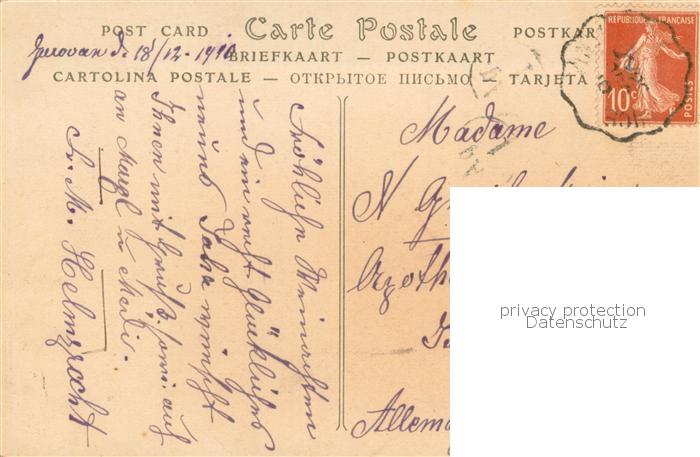 POST CARD Carte Postale POSTKAR
18/12. 1910
BRIEFKAART — POSTKAART
CARTOLINA POSTALE — ОТКРЫТОЕ ПИСЬМО — TARJETA
REPUBLIQUE FRANÇAISE
10c
POSTES
Fröhliche Weinachten
und ein recht glückliches
neues Jahr wünscht
Ihnen mit Gruß auf
an
Fr. M. Helmprecht
Madame
N
Apoth
Allema
privacy protection
Datenschutz